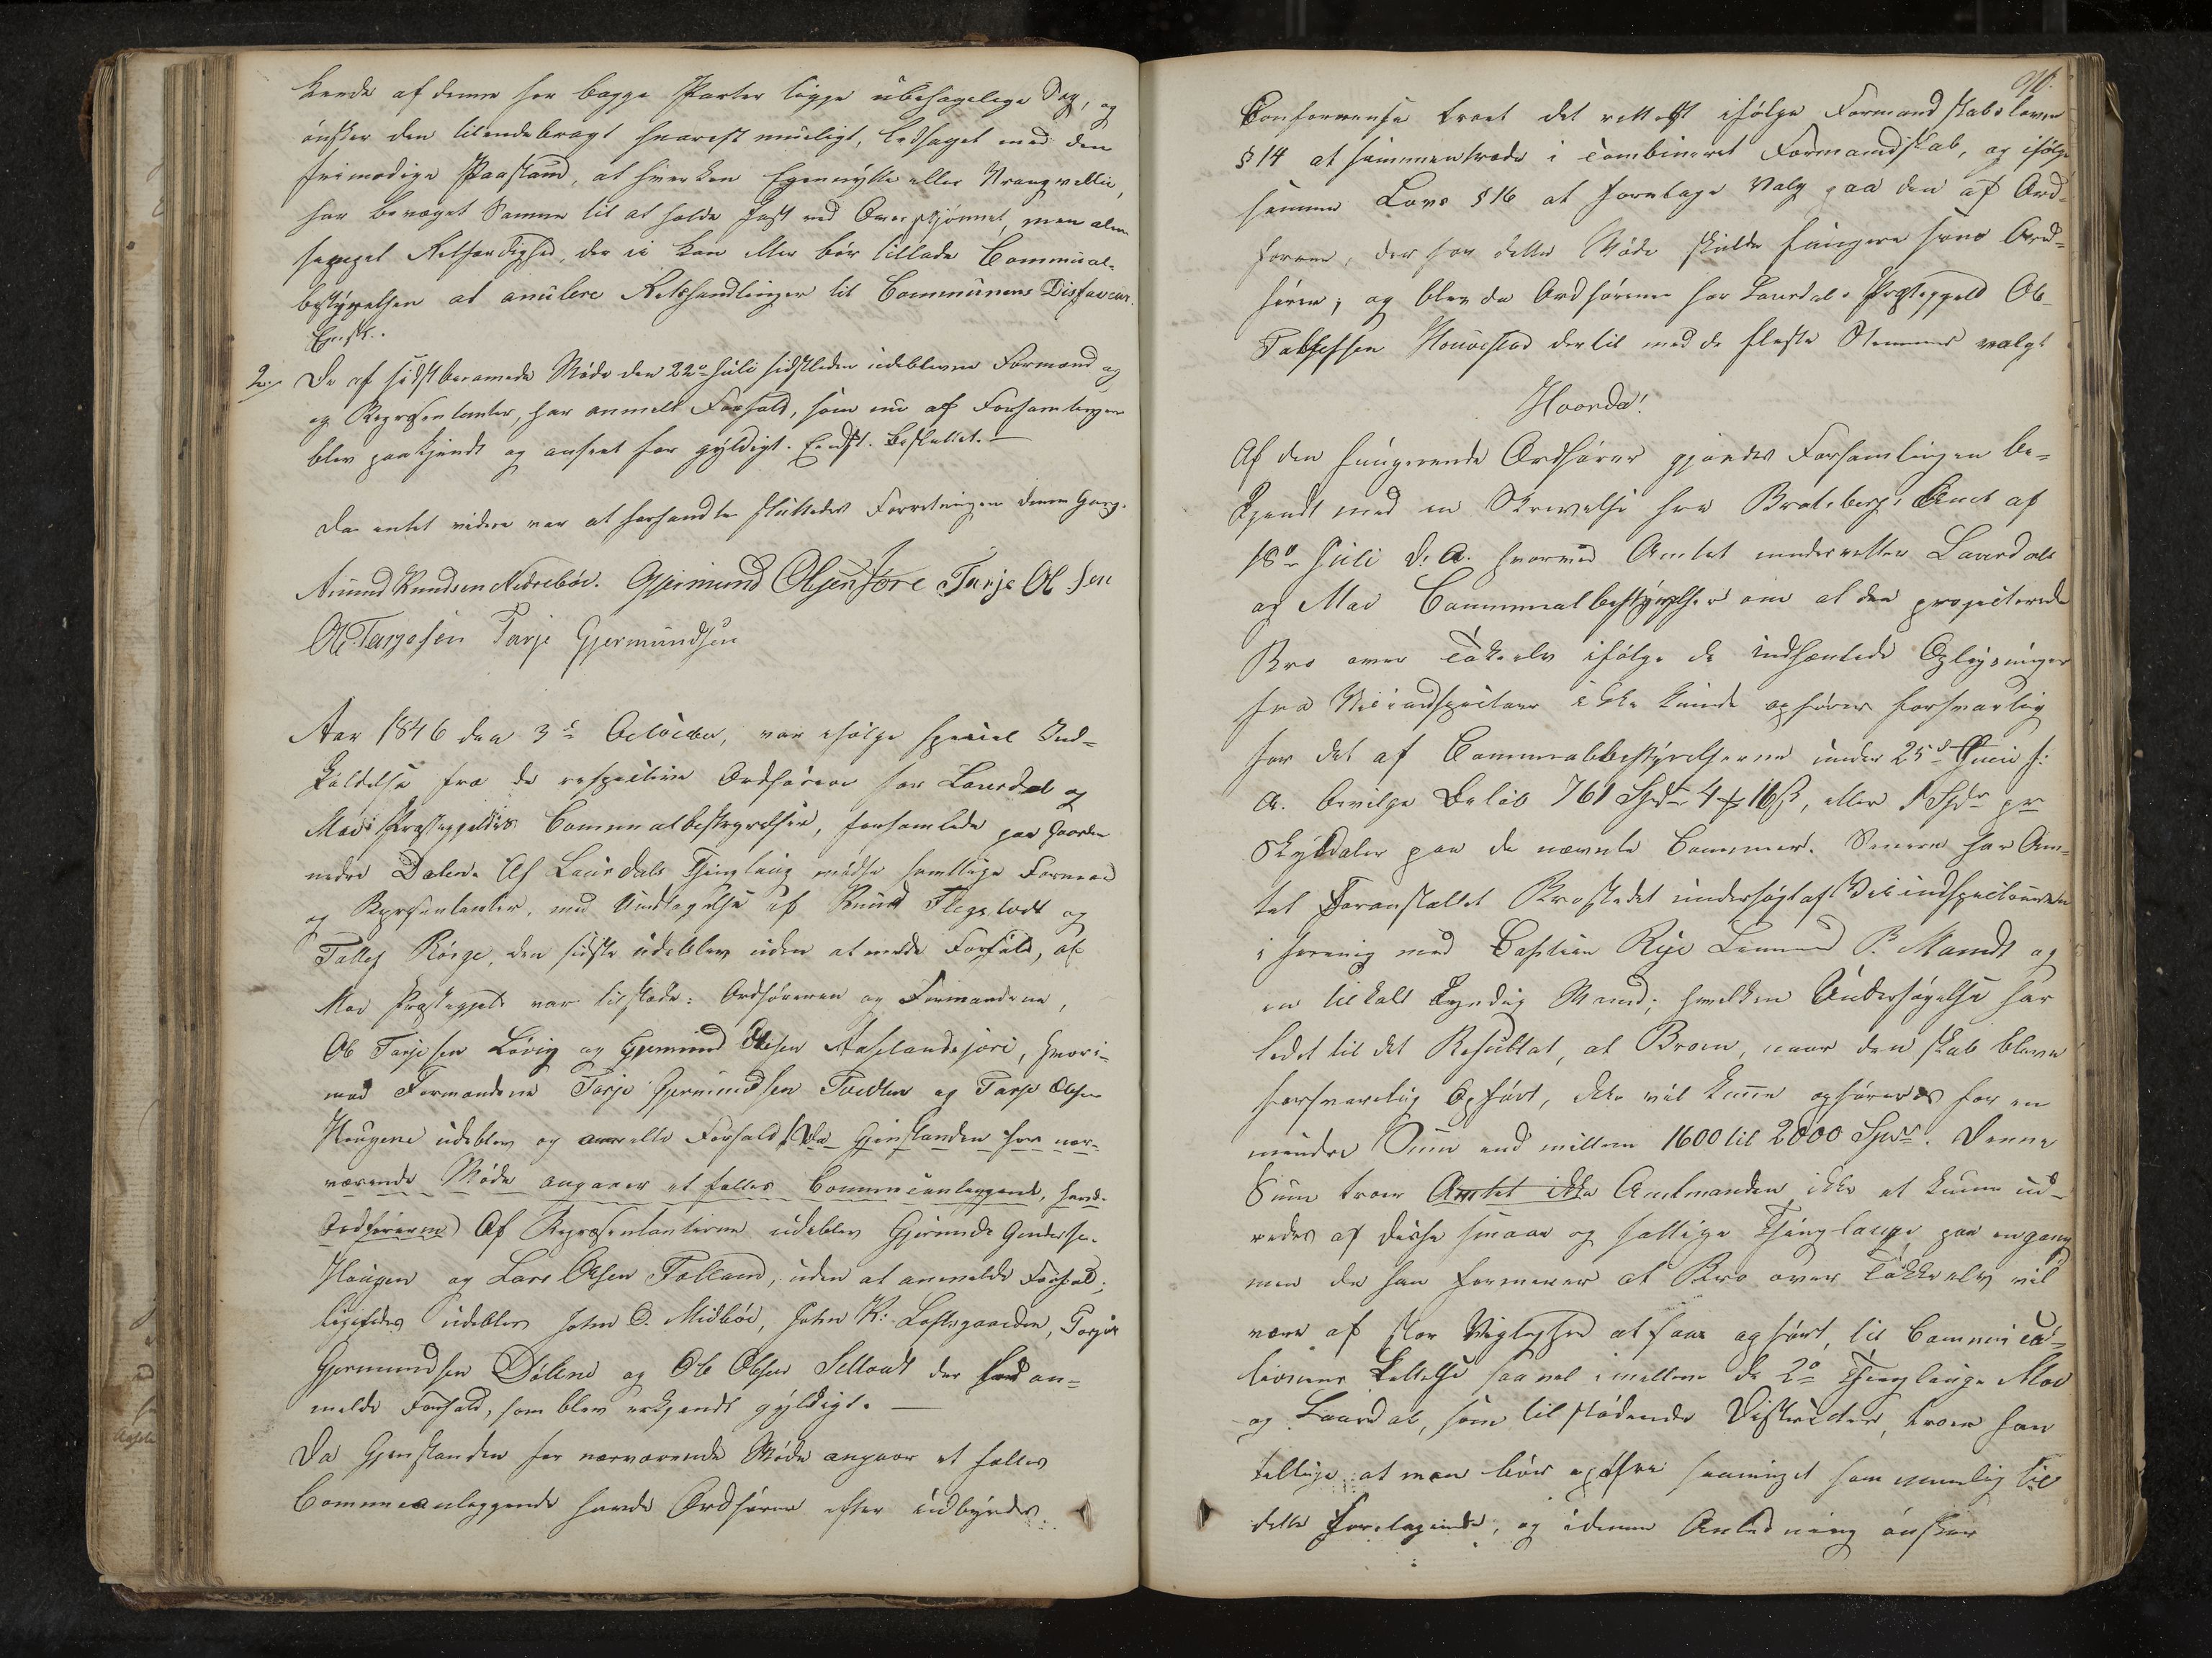 kende af denne for begge Parter lige ubehagelige Sag, og
ønsker den tilendebragt snarest mueligt, ledsaget med den
frimodige Paastand, at hverken Egennytte eller Vrangvillie,
har bevæget Samme til at holde fast ved Overskjønnet, men alene
Retfærdighed, der ei kan eller bør tillade Communal-
bestyrelsen at anulere Retshandlinger til Communens Disfaveur.
Eenst.
2. De af sidst beramede Møde den 22de Juli sidstleden udeblevne Formænd og
og Repræsentanter, har anmeldt Forfald, som nu af Forsamlingen
blev paakjendt og anseet for gyldigt. Eenst. besluttet. —
Da intet videre var at forhandle sluttedes Forretningen denne Gang.
Amund Knudsen Nedrebøe. Gjermund Olsen Jore Tarje Olsen
Ole Tarjesen Tarje Gjermundsen
Aar 1846 den 3die October, var ifølge speciel Ind-
kaldelse fra de respective Ordførere for Laurdal og
Moe Præstegjelds Communalbestyrelser, forsamlede paa Gaarden
nedre Dalen. Af Laurdals Thinglaug mødte samtlige Formænd
og Repræsentanter, med Undtagelse af Knud og
Tallef Rorge, den sidste udeblev uden at melde Forfald, af
Moe Præstegjeld var tilstede: Ordføreren og Formændene,
Ole Tarjesen Løvig og Gjermund Olsen Aaslandsjore, hvori-
mod Formændene Tarje Gjermundsen Tveiten og Tarje Olsen
Haugene udeblev og anmeldte Forfald (Da Gjenstanden for nær-
værende Møde angaaer et fælles Communeanliggende, havde
Ordførerne) Af Repræsentanterne udeblev Gjermund Gunderse.
Haugen og Lars Olsen Folland, uden at anmelde Forfald;
ligeledes udeblev John O. Midbøe, John K. Loftsgaarden, Tarje
Gjermundsen Dølene og Ole Olsen der an-
meldte Forfald, som blev erkjendt gyldigt. —
Da Gjenstanden for nærværende Møde angaar et fælles
Communeanliggende havde Ordførerne efter indbyrdes
Conferrense troet det rettest ifølge Formandskabsloven
§ 14 at sammentræde i combineret Formandskab, og ifølge
samme Lovs § 16 at foretage Valg paa den af Ord-
førerne, der for dette Møde skulde fungere som Ord-
fører; og blev da Ordføreren for Laurdals Præstegjeld Ole
Tallefsen dertil med de fleste Stemmer valgt
Hvorda!
Af den fungerende Ordfører gjordes Forsamlingen be-
kjendt med en Skrivelse fra Bratsberg Amt af
18de Juli d. A. hvorved Amtet underretter Laurdals
og Moe Communalbestyrelser om at den projecterede
Bro over Tokeelv ifølge de indhentede Oplysninger
fra Veiinspecteur ikke kunde opføres forsvarlig
for det af Communalbestyrelserne under 25de Juni f:
A. bevilge Beløb 761 Spdr 4 16 ß, eller 1 Spdr pr
Skylddaler paa de nævnte Communer. Senere har Am-
tet foranstaltet Brostedet undersøgt af Veiinspecteuren
i forening med Captain Rye Lensmand P. Mandt og
en tilkaldt kyndig Mand; hvilken Undersøgelse har
ledet til det Resultat, at Broen, naar den skal blive
forsvarlig opført, ikke vil kunne opføres for en
mindre Sum end mellem 1600 til 2000 Spdr. Denne
Sum troer Amtet ikke Amtmanden ikke at kunne ud-
redes af disse smaae og fattige Thinglauge paa engang
men da han formener at Bro over Tokkeelv vil
være af stor Vigtighed at faae opført, til Communica-
tionens Lettelse saavel imellem de 2de Thinglauge Moe
og Laurdal, som tilstødende Districter, troer han
tillige at man bør opofre saameget som muelig til
dette Foretagende, og i denne Anledning ønsker